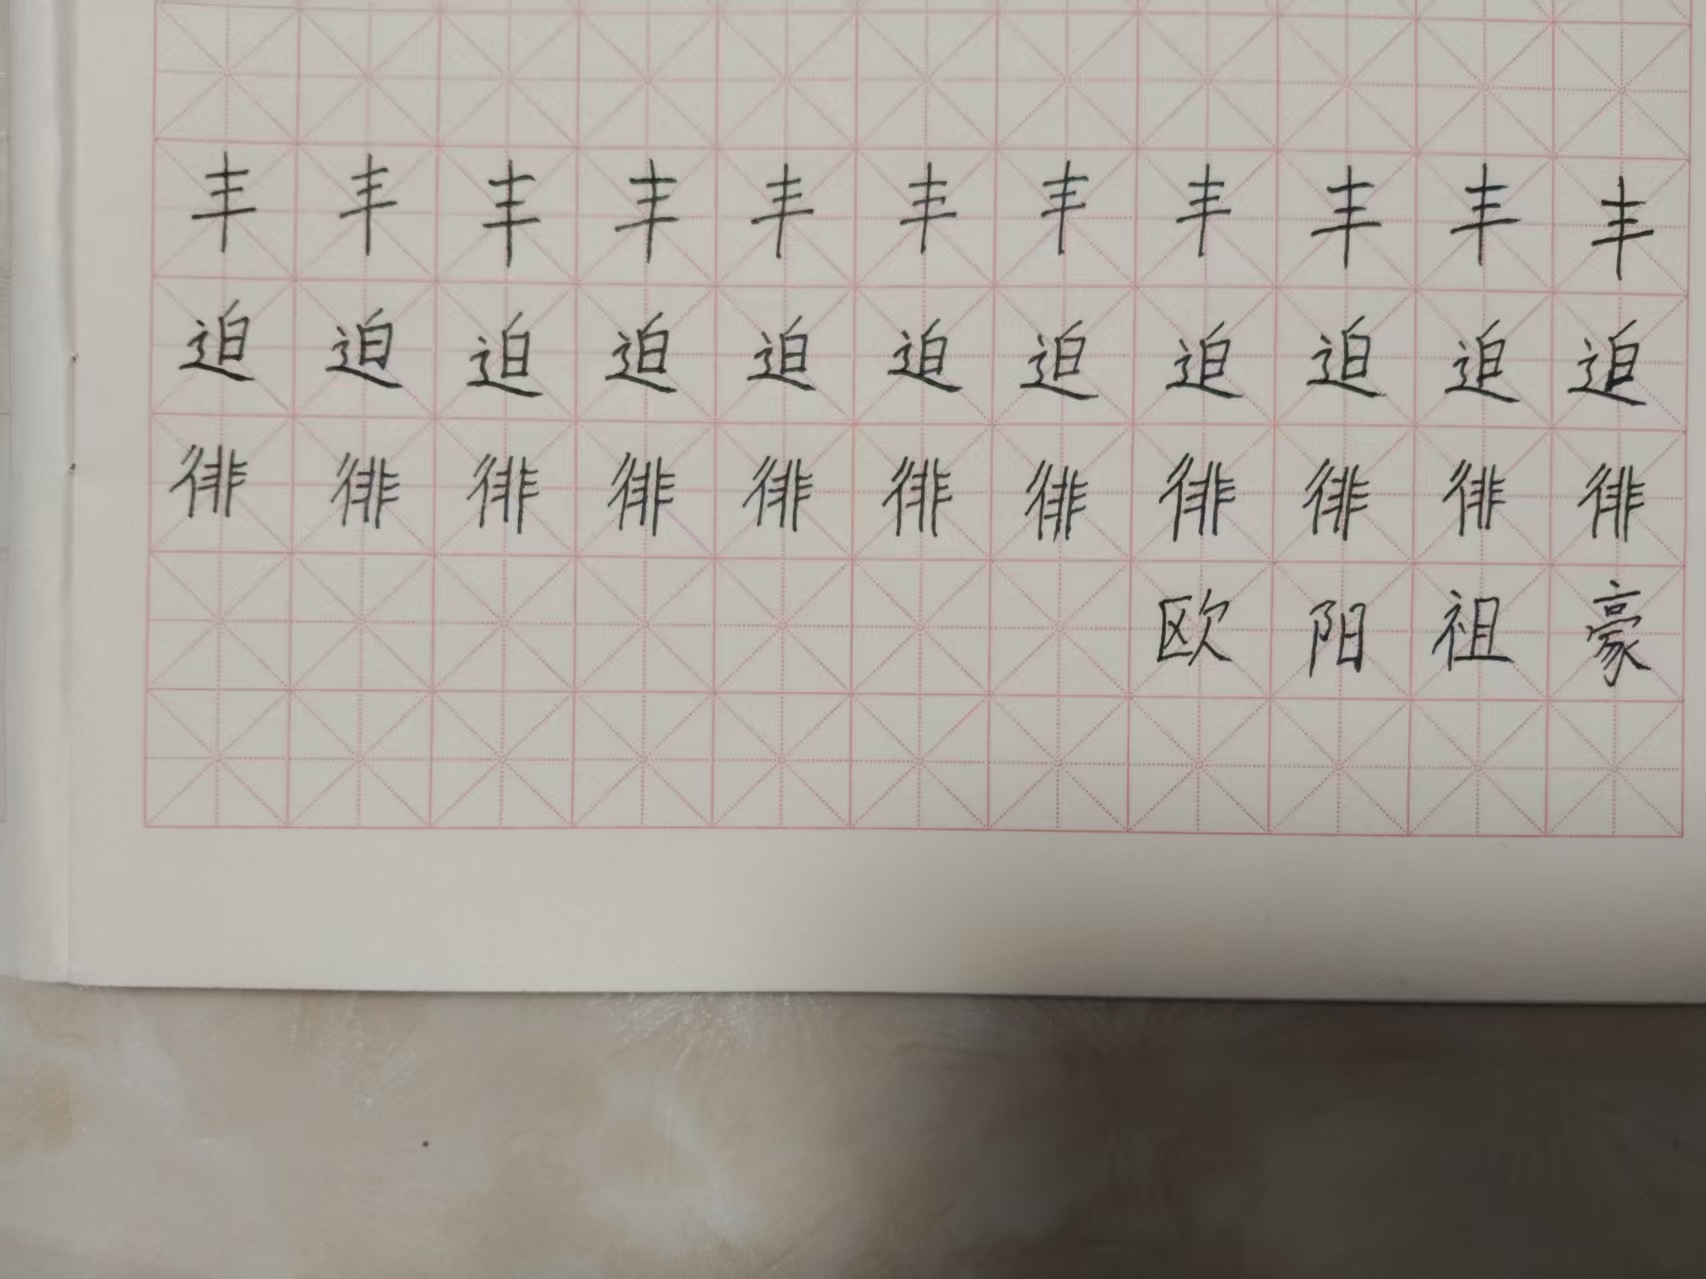 丰丰丰丰丰丰丰丰丰丰丰
迫迫迫迫迫迫迫迫迫迫迫
徘徘徘徘徘徘徘徘徘徘徘
欧阳祖豪